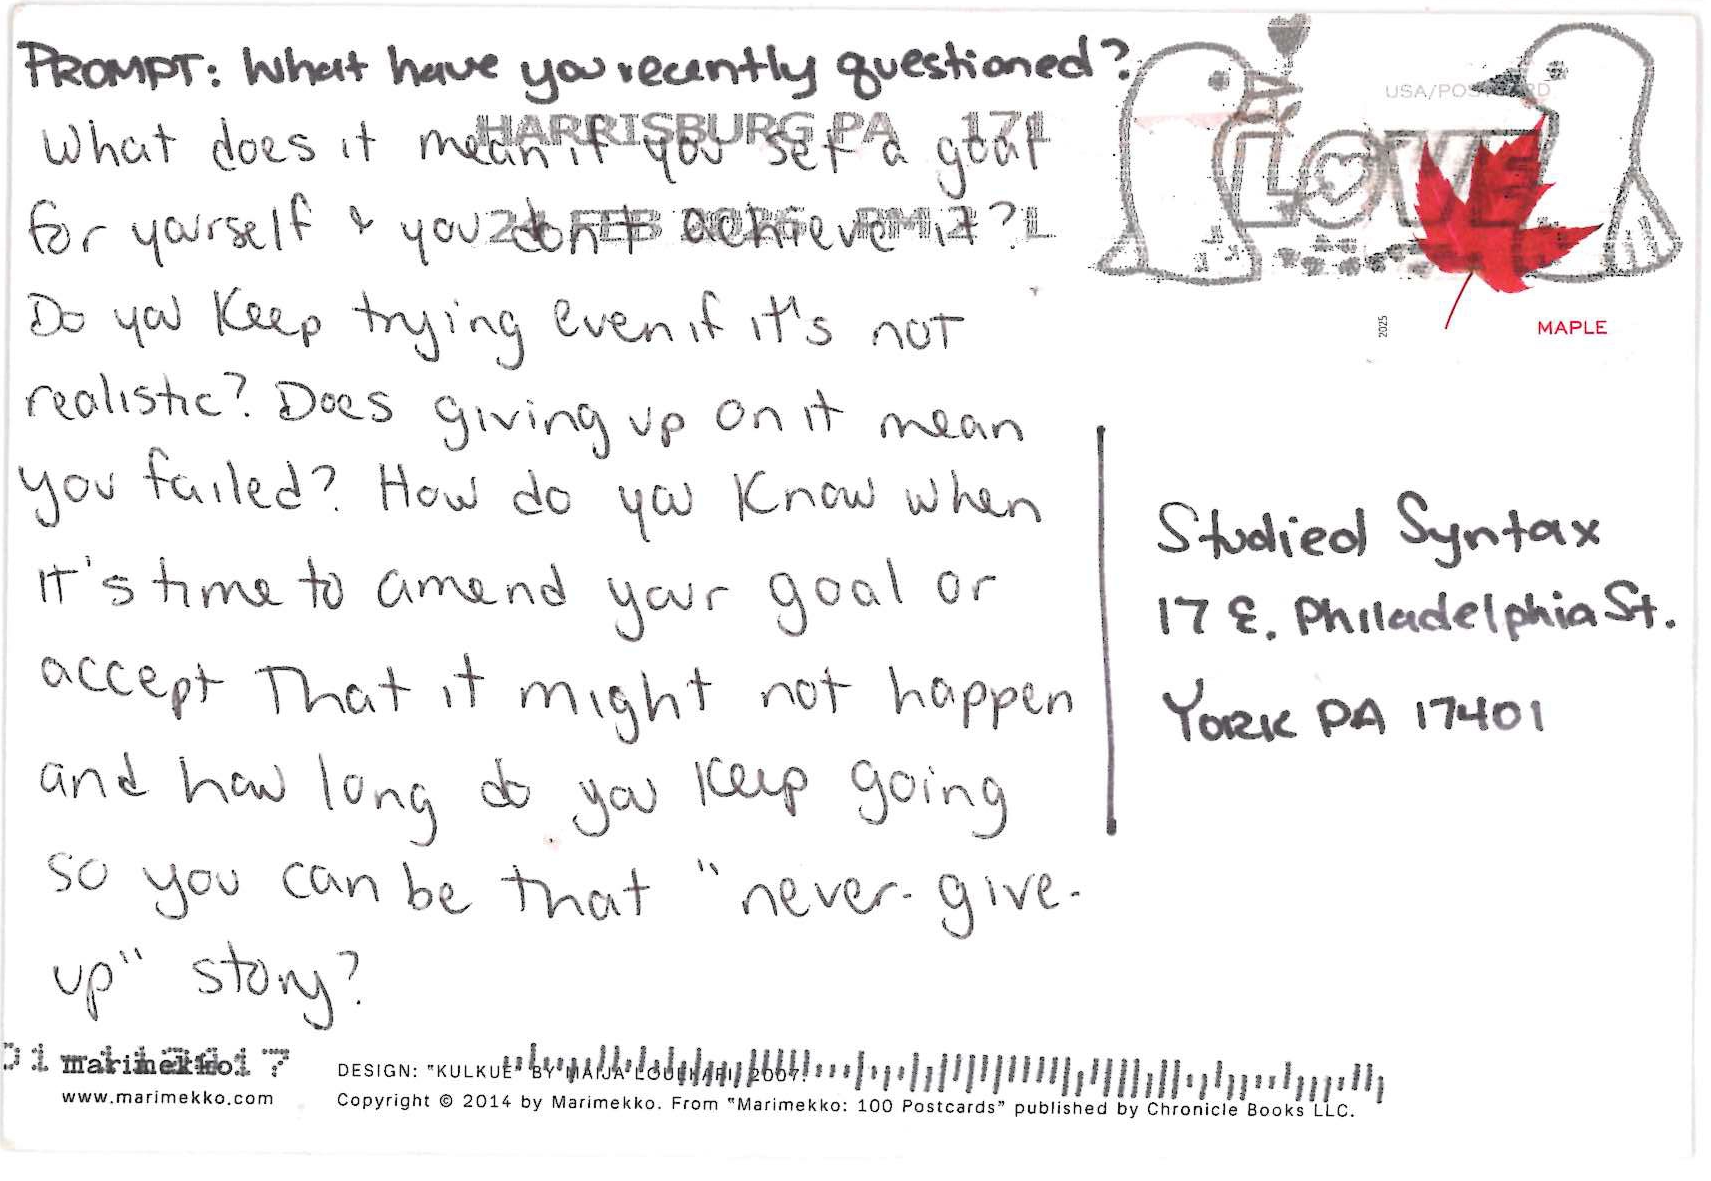 PROMPT: What have you recently questioned?
What does it mean if you set a goal
for yourself & you don't achieve it?
Do you keep trying even if it's not
realistic? Does giving up on it mean
you failed? How do you know when
it's time to amend your goal or
accept that it might not happen
and how long do you keep going
so you can be that "never-give-
up" story?
HARRISBURG PA 171
FEB PM L
LOVE
USA/POSTCARD
2025
MAPLE
Studied Syntax
17 E. Philadelphia St.
YORK PA 17401
marimekko
www.marimekko.com
DESIGN: "KULKUE" BY MAIJA LOUEKARI, 2007.
Copyright © 2014 by Marimekko. From "Marimekko: 100 Postcards" published by Chronicle Books LLC.